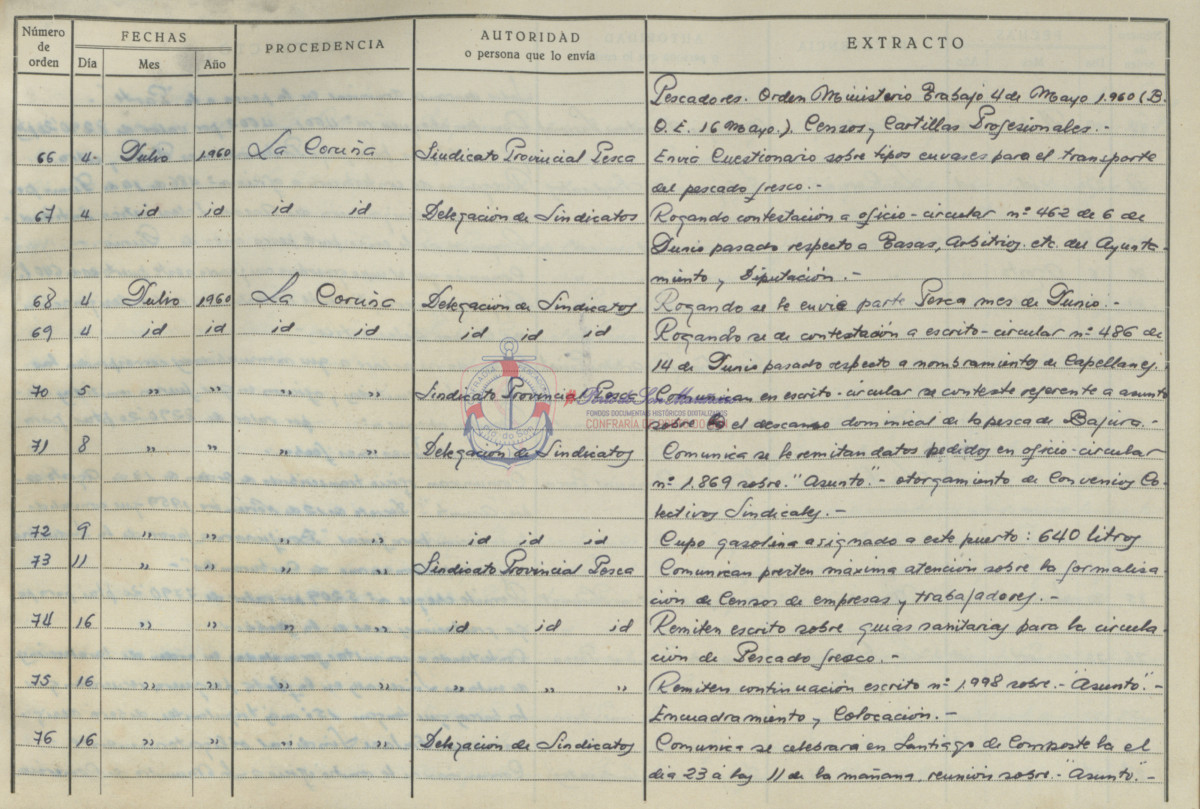 Número de orden FECHAS PROCEDENCIA AUTORIDAD o persona que lo envía EXTRACTO
Día Mes Año
Pescadores. Orden Ministerio Trabajo 4 de Mayo 1.960 (B.
O. E. 16 Mayo.). Censos, Cartillas Profesionales.-
66 4- Julio 1960 La Coruña Sindicato Provincial Pesca Envia Cuestionario sobre tipos envases para el transporte
del pescado fresco.-
67 4 id id id id Delegación de Sindicatos Rogando contestación a oficio-circular nº 462 de 6 de
Junio pasado respecto a Tasas, Arbitrios. etc. del Ayunta-
miento y Diputación.-
68 4 Julio 1960 La Coruña Delegación de Sindicatos Rogando se le envie parte Pesca mes de Junio.-
69 4 id id id id id id id Rogando se de contestación a escrito-circular nº 486 de
14 de Junio pasado respecto a nombramientos de Capellanes.
70 5 " " " " Sindicato Provincial Pesca Comunican en escrito-circular se conteste referente a asunto
sobre el descanso dominical de la pesca de Bajura.-
FONDOS DOCUMENTAIS HISTÓRICOS DIGITALIZADOS
CONFRARIA
71 8 " " " " Delegación de Sindicatos Comunica se le remitan datos pedidos en oficio-circular
nº 1.869 sobre. "Asunto".- otorgamiento de Convenios Co-
lectivos Sindicales.-
72 9 " " " " id id id Cupo gasolina asignado a este puerto: 640 litros
73 11 " " " " Sindicato Provincial Pesca Comunican presten máxima atención sobre la formaliza-
ción de Censos de empresas y trabajadores.-
74 16 " " " " id id id Remiten escrito sobre guias sanitarias para la circula-
ción de Pescado fresco.-
75 16 " " " " " " " Remiten continuación escrito nº 1.998 sobre.- "Asunto".-
Encuadramiento y Colocación.-
76 16 " " " " Delegación de Sindicatos Comunica se celebrará en Santiago de Compostela el
dia 23 á las 11 de la mañana, reunión sobre.- "Asunto".-